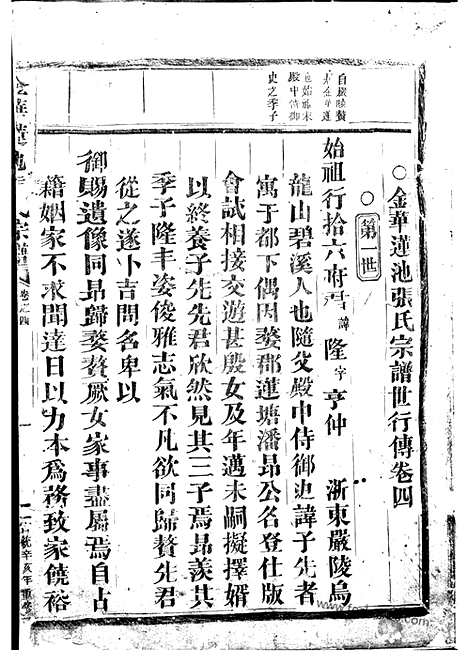 ○金華蓮池張氏宗譜世行傳卷四
○第一世
始祖行拾六府君諱隆字亨仲 浙東嚴陵烏
龍山碧溪人也隨父殿中侍御史諱子先者
寓于都下偶因婺郡蓮塘潘昂公名登仕版
會試相接交遊甚殷女及年邁未嗣擬擇婿
以終養子先先君欣然見其三子焉昂羨其
季子隆丰姿俊雅志氣不凡欲同歸贅先君
從之遂卜吉問名卑以
御賜遺像同昂歸婺贅厥女家事盡屬焉自占
籍姻家不求聞達日以力本為務致家饒裕
自嚴陵贅
宗譜
卷之四
統辛亥年重修
史之季子